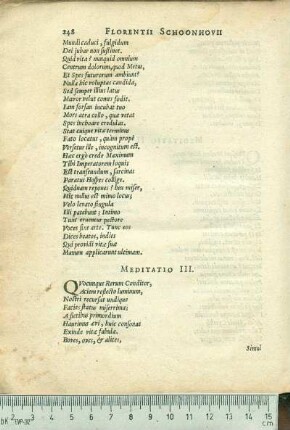 248 FLORENTII SCHOONHOVII
Mundi caduci, fulgidum
Dei jubar non sustinet.
Quid vita? nunquid omnium
Centrum dolorum, quod Metus,
Et Spes futurorum ambiunt?
Nulla hic voluptas candida,
Sed semper illius latus
Mæror velut comes fodit.
Iam forsan incubat tuo
Mors atra collo, quæ vetat
Spes inchoare credulas.
Stat cuique vitæ terminus
Fato locatus, quàm propè
Versetur ille, incognitum est.
Hac ergo crede Maximum
Tibi Imperatorem loqui:
Est transeundum, sarcinas
Paratus Hospes collige.
Quidnam repones? heu miser,
Hic nullus est mino locus;
Velo levato singula
Illi patebunt; Intimo
Tunc eruentur pectore
Voces sine arte. Tunc eos
Dices beatos, indies
Qui providi vitæ suæ
Manum applicarunt ultimam.
MEDITATIO III.
QVocunque Rerum Conditor,
Aciem reflecto luminum,
Nostri recursat undique
Facies status miserrima;
A fletibus primordium
Haurimus ævi, huic consonat
Exinde vitæ fabula.
Boves, oves, & alites,
Simul
2 3 4 5 6 7 8 9 10 11 12 13 14 15
cm